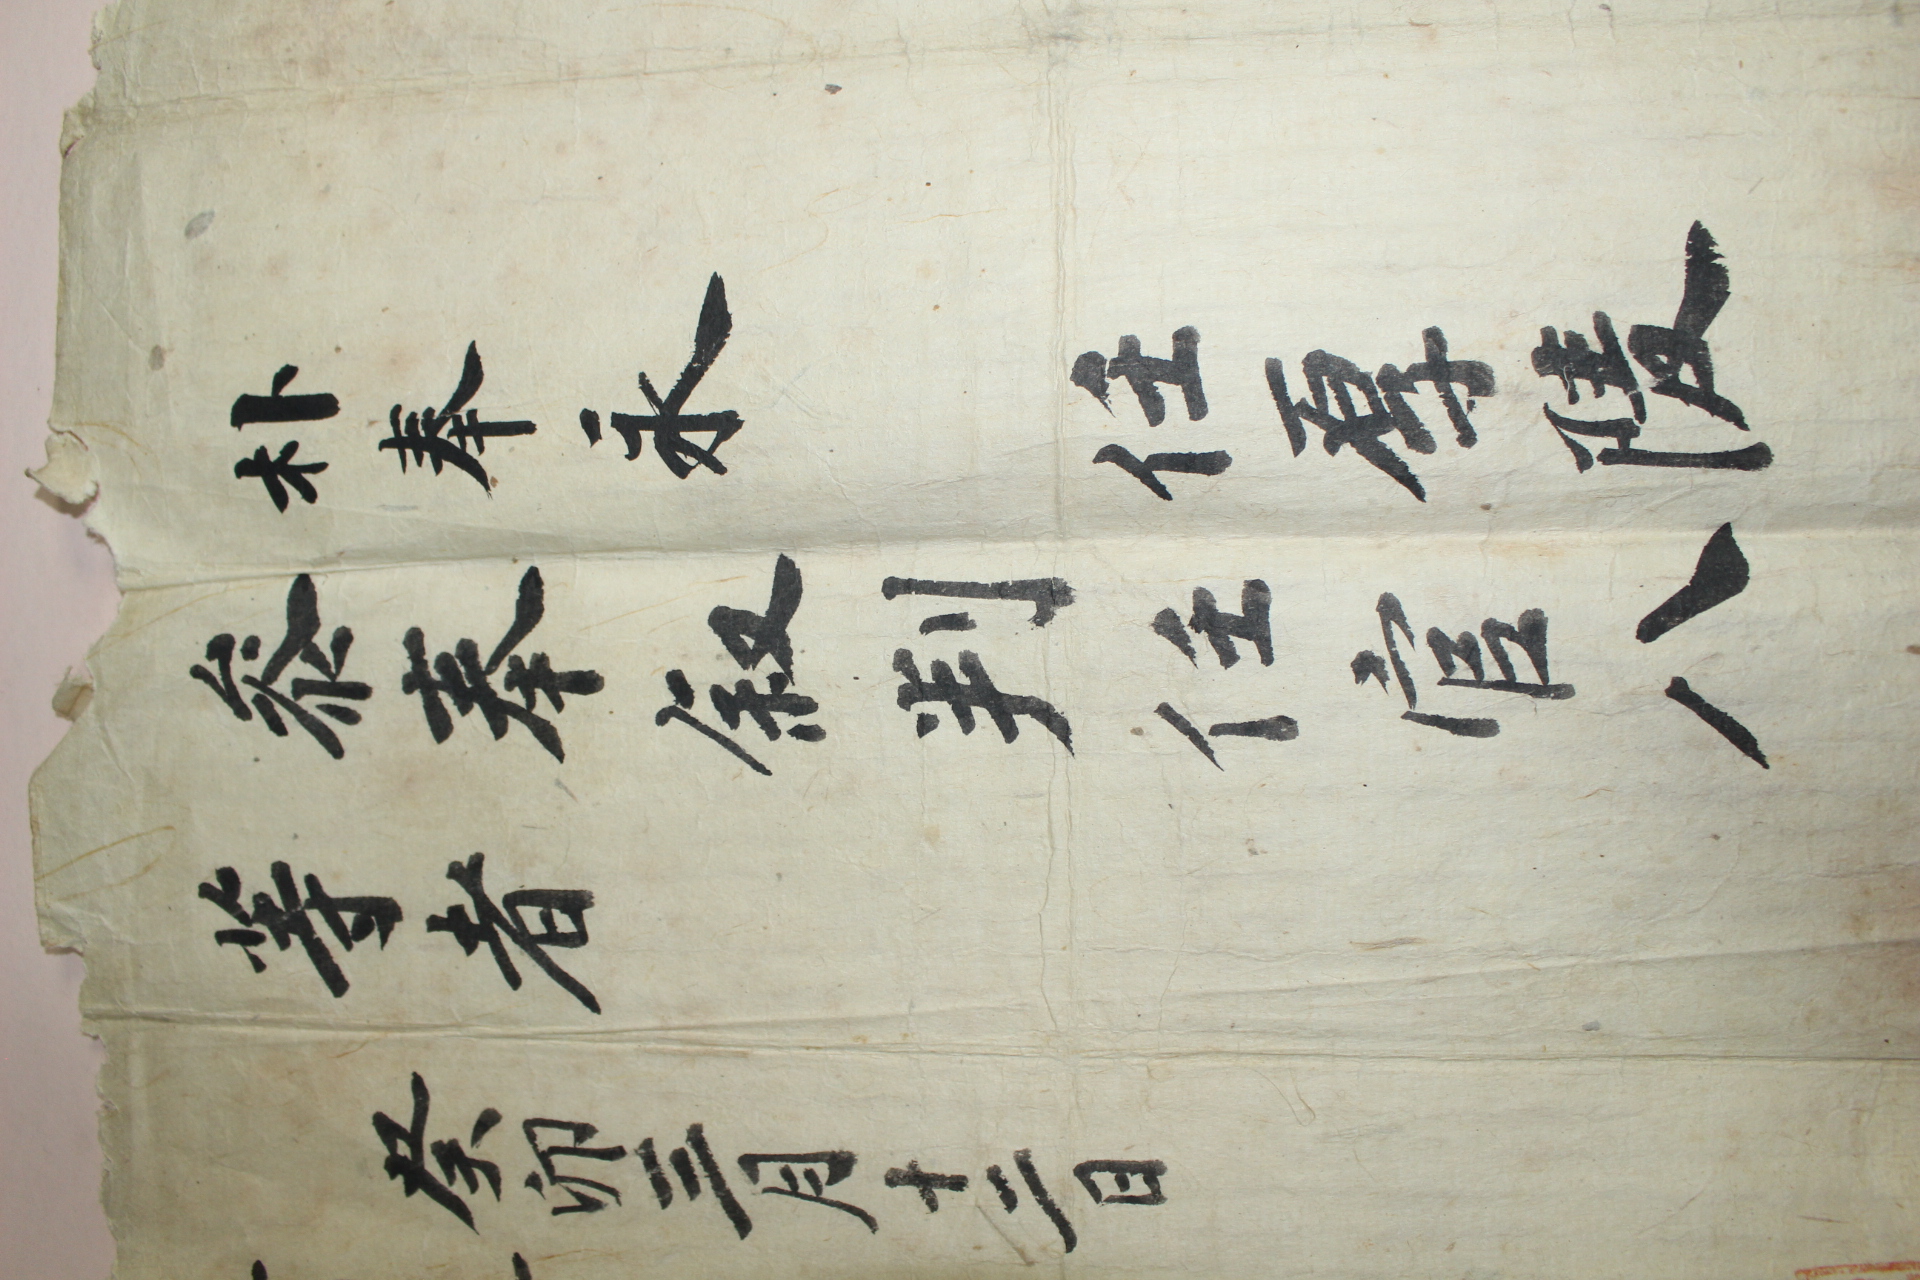 朴奉永　任厚陵
叅奉叙判任官八
等者
癸卯三月十二日